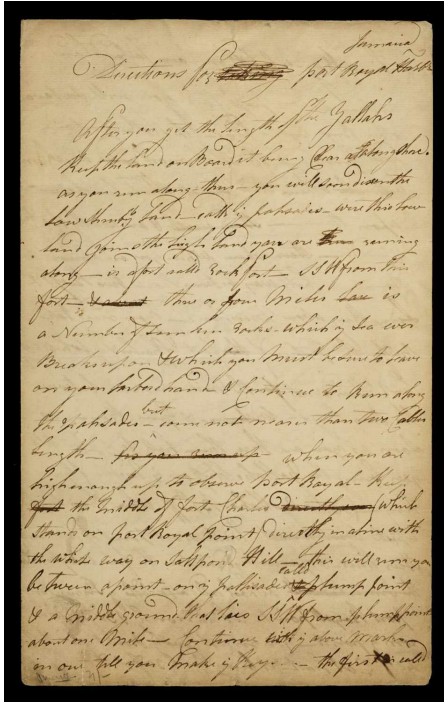 Jamaica
Directions for taking port Royal Harbr
After you get the length of the Yallahs
Keep the land on Board it being Clear all along Shore.
as you run along thus — you will soon discern the
Low Shruby Land — call'd ye palisades — were this Low
land Joins the high Land you are running
along — is a fort called Rock fort — SSW from this
fort — & about three or four Miles is
a Number of Sunken Rocks — which ye Sea ever
Breaks upon & which you Must be sure to Leave
on your larbord hand — & Continue to Run along
but
the palisades — come not nearer than two Cables
length — when you are
high enough up to observe port Royal — Keep
the Middle of forte Charles (which
Stands on port Royal point) directly in a line with
the white way on Saltpond Hill — this will run you
called
between a point — on ye pallisades plump point
& a Middle ground that lies SSW from plump point
about one Mile — Continue ye above Marks
in one till you Make ye Keys — the first is called